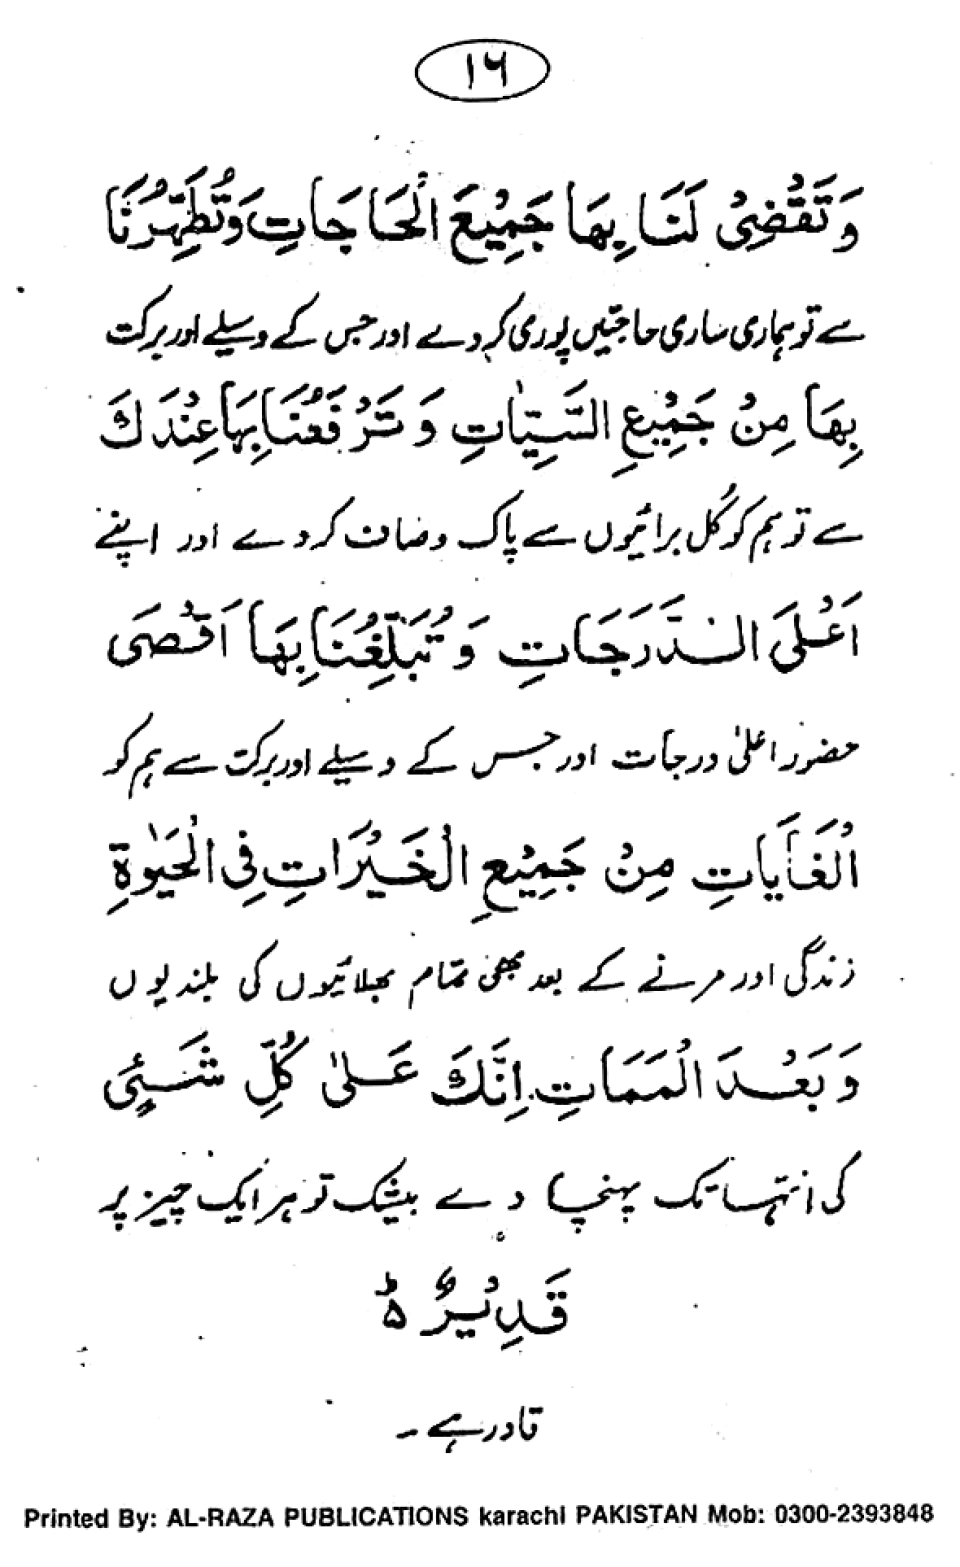 ۱۶
وَتَقْضِیْ لَنَا بِهَا جَمِیْعَ الْحَاجَاتِ وَتُطَهِّرُنَا
سے تو ہماری ساری حاجتیں پوری کر دے اور جس کے وسیلے اور برکت
بِهَا مِنْ جَمِیْعِ السَّیِّاٰتِ وَ تَرْفَعُنَا بِهَا عِنْدَكَ
سے تو ہم کو کُل برائیوں سے پاک و صاف کر دے اور اپنے
اَعْلَی الدَّرَجَاتِ وَ تُبَلِّغُنَا بِهَا اَقْصَی
حضور اعلیٰ درجات اور جس کے وسیلے اور برکت سے ہم کو
الْغَایَاتِ مِنْ جَمِیْعِ الْخَیْرَاتِ فِی الْحَیٰوةِ
زندگی اور مرنے کے بعد بھی تمام بھلائیوں کی بلندیوں
وَ بَعْدَ الْمَمَاتِ اِنَّكَ عَلیٰ كُلِّ شَیْئٍ
کی انتہا تک پہنچا دے بیشک تو ہر ایک چیز پر
قَدِیْرٌ ۵ؕ
قادر ہے ۔
Printed By: AL-RAZA PUBLICATIONS karachi PAKISTAN Mob: 0300-2393848